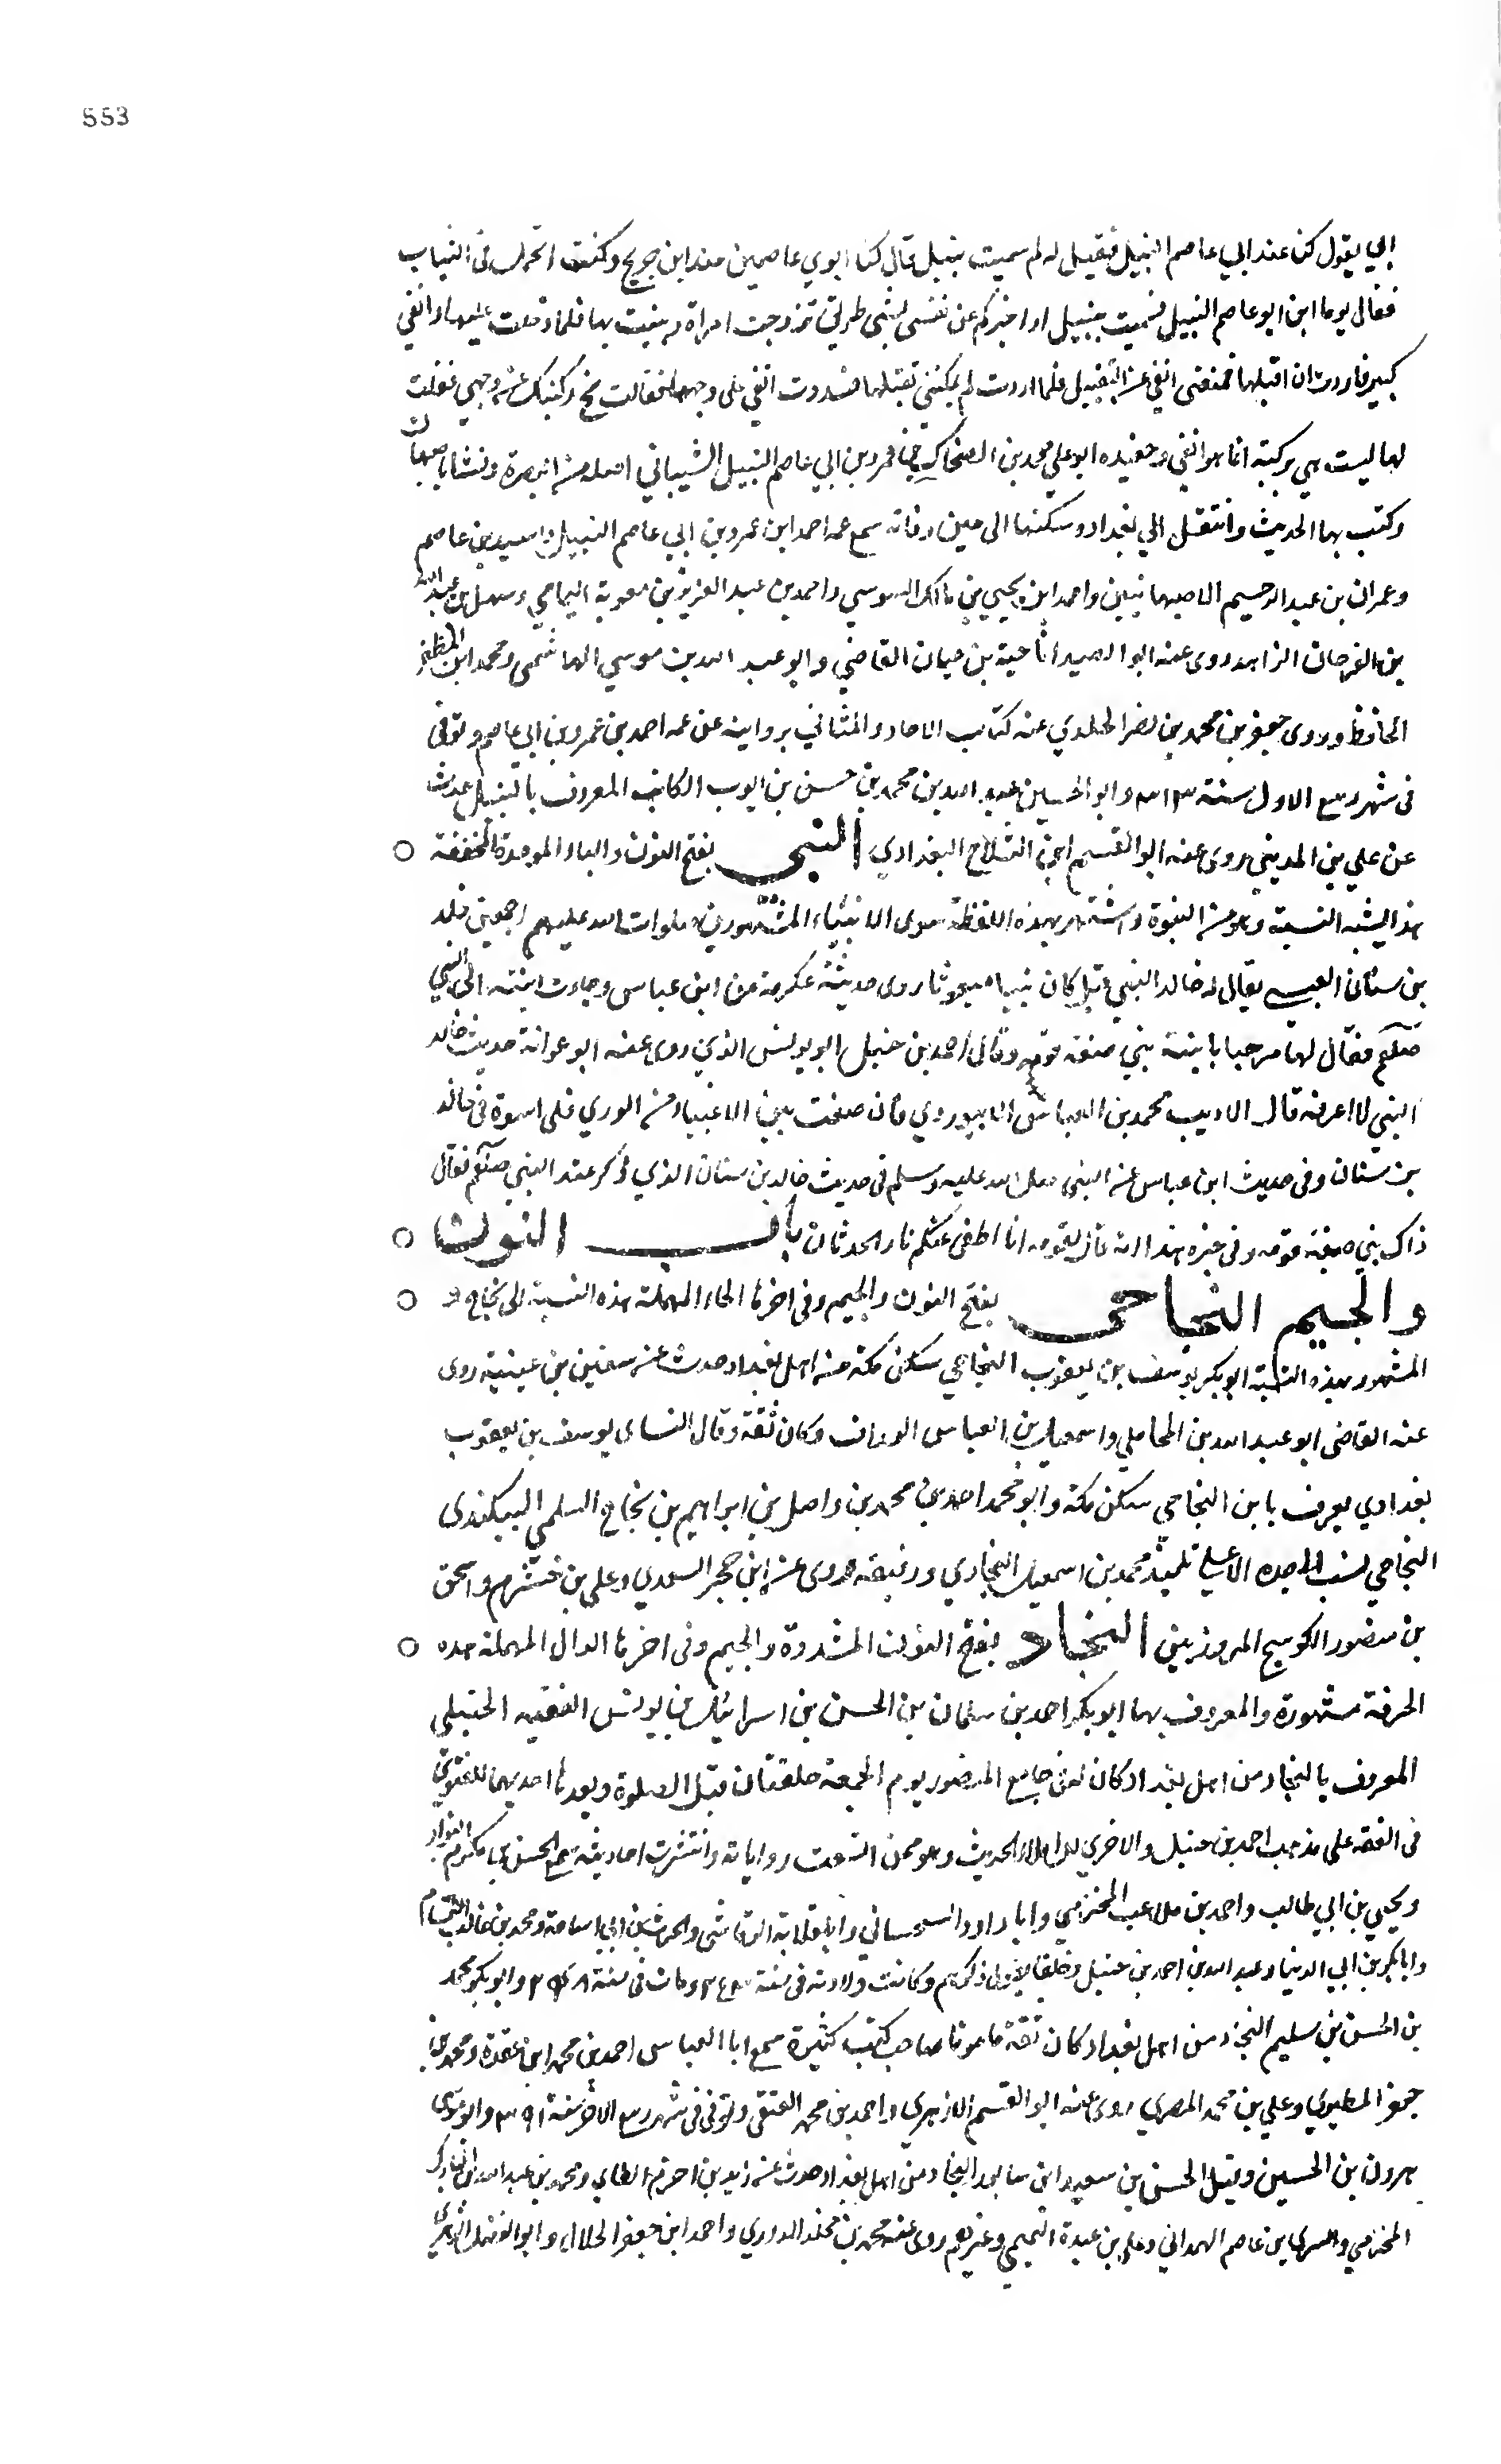 553
ابي يقول كنا عند ابي عاصم النبيل فقيل له لم سميت بنبيل قال كنا ابوي عاصمين عند ابن جريج وكنت اتجمل في الثياب
فقال يوما ابن ابو عاصم النبيل فسميت بنبيل او اخبركم عن نفسي بشي طريق تزوجت امراة وبنيت بها فلما دخلت عليها وانفي
كبير فاردت ان اقبلها فمنعني انفي عن التقبيل فلما اردت لم يمكنني تقبيلها فشددت انفي على وجهها فقالت نح ركبتك عن وجهي فقلت
لها ليست هي بركبة انما هو انفي وحفيده ابو علي محمد بن الضحاك بن عمرو بن ابي عاصم النبيل الشيباني اصله من البصرة ونشا باصبهان
وكتب بها الحديث وانتقل الي بغداد وسكنها الى حين وفاته سمع عمه احمد ابن عمرو بن ابي عاصم النبيل واسيد بن عاصم
وعمران بن عبد الرحيم الاصبهانيين واحمد ابن يحيى بن مالك السوسي واحمد بن عبد العزيز بن معوية اليمامي وسهل بن عبد الله
بن الفرحان الزاهد روى عنه ابو الصيدا ناحية بن حيان القاضي وابو عبد الله بن موسي الهاشمى ومحمد ابن المظفر
الحافظ وروى جعفر بن محمد بن نصر الخلدي عنه كتاب الاحاد والمثاني بروايته عن عمه احمد بن عمرو بن ابي عاصم وتوفي
في شهر ربيع الاول سنة ٣١٣ وابو الحسين عبد الله بن محمد بن حسن بن ايوب الكاتب المعروف بالنبيل حدث
عن علي بن المديني روى عنه ابو القسم ابن الثلاج البغدادي النبي بفتح النون والباء الموحدة المخففة
هذا يشبه النسبة وهو من النبوة واشتهر بهذه اللفظة سوى الانبياء المشهورين صلوات الله عليهم اجمعين خلد
بن سنان العبسي يقال له خالد النبي قيل كان نبيا مبعوثا روى حديثه عكرمة عن ابن عباس وجاءت ابنته الى النبي
صلعم فقال لها مرحبا بابنة نبي ضيعه قومه وقال احمد بن حنبل ابو يونس الذي روى عنه ابو عوانة حديث خالد
النبي لا اعرفه قال الاديب محمد بن العباس الابيوردي فان ضعت بين الاغبياء من الوري فلى اسوة في خالد
بن سنان وفي حديث ابن عباس عن النبى صلى الله عليه وسلم في حديث خالد بن سنان الذي ذكر عند النبي صلعم فقال
ذاك نبي ضيعه قومه وفي خبره هذا انه قال لقومه انا اطفي عنكم نار الحدثان باب النون
والجيم النجاحى بفتح النون والجيم وفي اخرها الحاء المهملة هذه النسبة الى نجاح و
المشهور بهذه النسبة ابو بكر يوسف بن يعقوب النجاحي سكن مكة من اهل بغداد حدث عن سفين بن عيينة روى
عنه القاضى ابو عبد الله بن المحاملي واسمعيل بن العباس الوراق وكان ثقة وقال النساى يوسف بن يعقوب
بغدادي يعرف بابن النجاحي سكن مكة وابو محمد احمد بن محمد بن واصل بن ابراهيم بن نجاح السلمي البيكندى
النجاحي نسب الى جده الاعلى تلميذ محمد بن اسمعيل البخاري ورفيقه روى عن ابن حجر السعدي وعلي بن خشرم واسحق
بن منصور الكوسج المروزيين النجاد بفتح النون المشددة والجيم وفي اخرها الدال المهملة هذه
الحرفة مشهورة والمعروف بها ابو بكر احمد بن سلمان بن الحسن بن اسرائيل بن يونس الفقيه الحنبلي
المعروف بالنجاد من اهل بغداد كان له في جامع المنصور يوم الجمعة حلقتان قبل الصلوة وبعدها احديهما للفتوى
في الفقه على مذهب احمد بن حنبل والاخري لاملاء الحديث وهو ممن اتسعت رواياته وانتشرت احاديثه سمع الحسن بن مكرم البزار
ويحيى بن ابي طالب واحمد بن ملاعب المخرمي وابا داود السجستاني وابا قلابة الرقاشي والحرث بن ابي اسامة ومحمد بن غالب التمتام
وابا بكر بن ابي الدنيا وعبد الله بن احمد بن حنبل وخلقا يطول ذكرهم وكانت ولادته في سنة ومات في سنة ٣٤٨ وابو بكر محمد
بن الحسن بن سليم النجاد من اهل بغداد كان ثقة مامونا صاحب كتب كثيرة سمع ابا العباس احمد بن محمد ابن عقدة ومحمد بن
جعفر المطيري وعلي بن محمد المصري روى عنه ابو القسم الازهري واحمد بن محمد العتيقي وتوفي في شهر ربيع الاخر سنة ٣٩١ وابو موسى
هرون بن الحسين وقيل الحسن بن سعيد ابن سابور النجاد من اهل بغداد حدث عن زيد بن اخزم الطاي ومحمد بن عبد الله بن المبارك
المخرمي والسري بن عاصم الهمداني وعلي بن عبدة التميمي وغيرهم روى عنه محمد بن مخلد الدوري واحمد ابن جعفر الخلال وابو الفضل الزهري